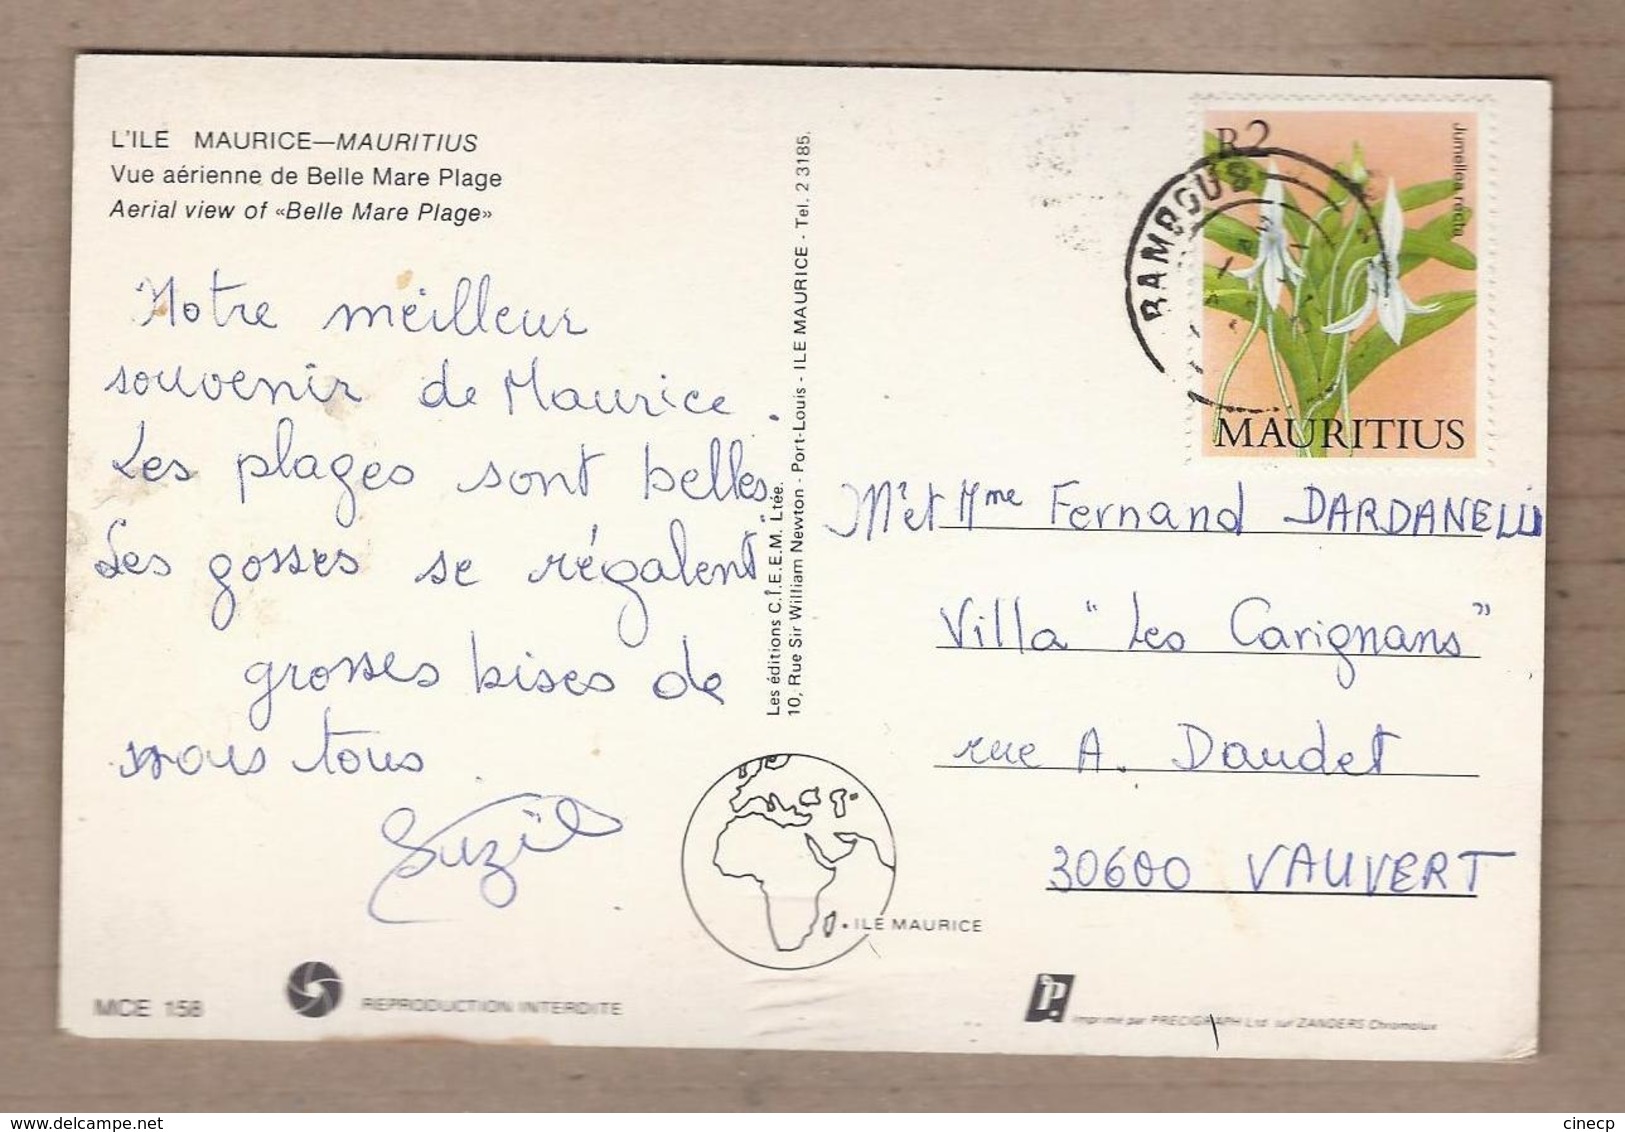 L'ILE MAURICE—MAURITIUS
Vue aérienne de Belle Mare Plage
Aerial view of «Belle Mare Plage»
Notre meilleur
souvenir de Maurice.
Les plages sont belles.
Les gosses se régalent
grosses bises de
nous tous
MCE 158
REPRODUCTION INTERDITE
Les éditions C.I.E.E.M. Ltée.
10, Rue Sir William Newton - Port-Louis - ILE MAURICE - Tel. 2 3185.
ILE MAURICE
R2
Jumellea recta
MAURITIUS
BAMBOUS
Mr et Mme Fernand DARDANELLI
Villa "Les Carignans"
rue A. Daudet
30600 VAUVERT
P.
Imprimé par PRECIGRAPH Ltd sur ZANDERS Chromolux
cinecp